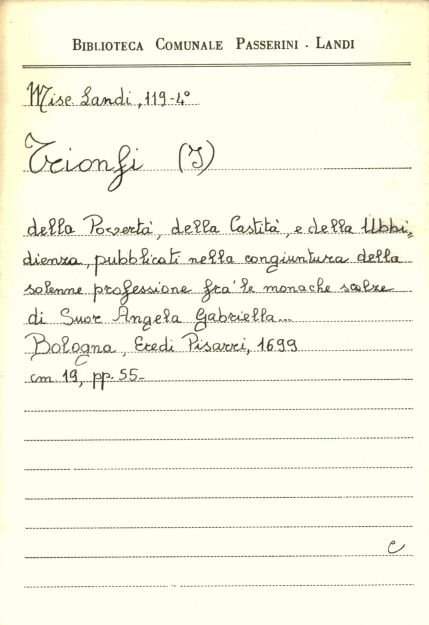 BIBLIOTECA COMUNALE PASSERINI - LANDI
Misc. Landi, 119-4°
Trionfi (I)
della Povertà, della Castità, e della Ubbi=
dienza, pubblicati nella congiuntura della
solenne professione fra' le monache scalze
di Suor Angela Gabriella...
Bologna, Eredi Pisarri, 1699
cm 19, pp. 55-
C